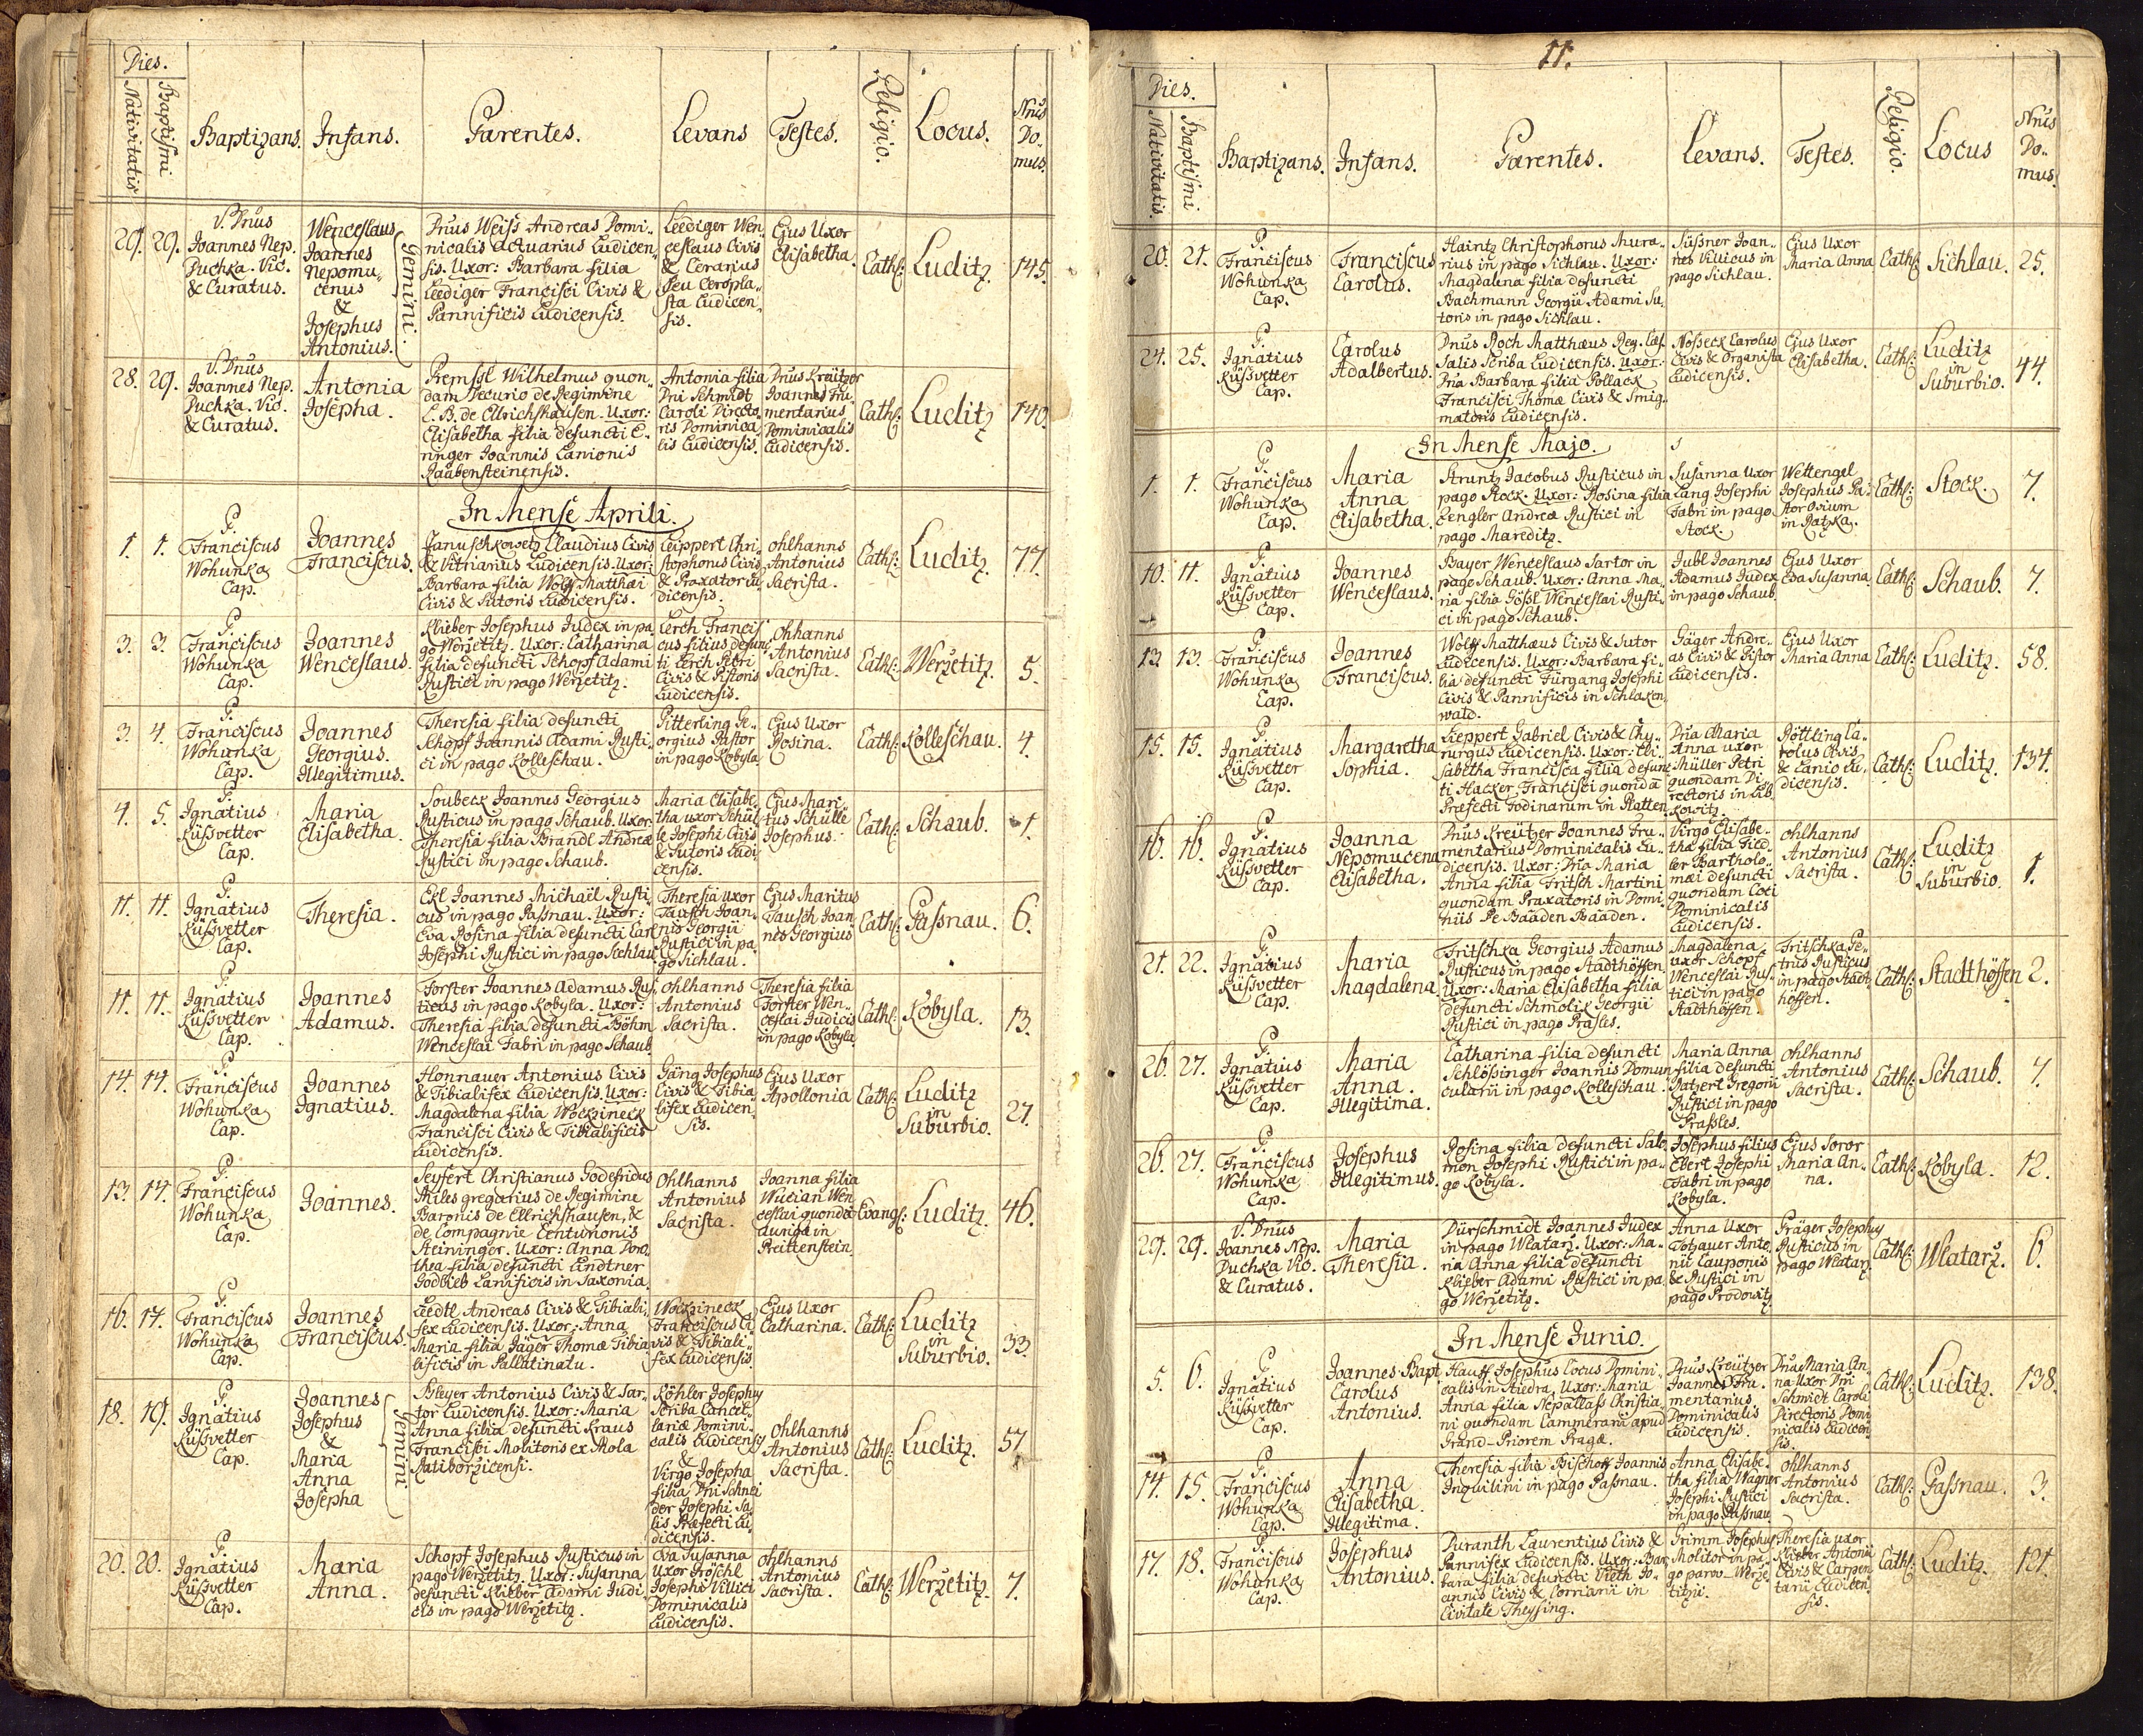 Dies.
Nativitatis
Baptismi
Baptizans.
Infans.
Parentes.
Levans
Testes.
Religio.
Locus.
Nrus
Do..
mus.
29. 29.
V. Dnus
Joannes Nep.
Puchka. Vic.
& Curatus.
Wenceslaus
Joannes
Nepomu..
cenus
&
Josephus
Antonius.
Gemini.
Dnus Weiss Andreas Domi..
nicalis Actuarius Ludicen..
sis. Uxor: Barbara filia
Leediger Francisci Civis &
Pannificis Ludicensis.
Leediger Wen..
ceslaus Civis
& Cerarius
seu Ceropla..
sta Ludicen..
sis.
Ejus Uxor
Elisabetha.
Cath:
Luditz.
145.
28. 29.
V. Dnus
Joannes Nep.
Puchka. Vic.
& Curatus.
Antonia
Josepha.
Premssl Wilhelmus quon..
dam Decurio de Regimine
L. B. de Ellrichshausen. Uxor:
Elisabetha filia defuncti E..
ringer Joannis Lanionis
Raabensteinensis.
Antonia filia
Dni Schmidt
Caroli Directo..
ris Dominica..
lis Ludicensis.
Dnus Kreützer
Joannes Fru..
mentarius
Dominicalis
Ludicensis.
Cath:
Luditz
140.
In Mense Aprili.
1. 1.
P.
Franciscus
Wohunka
Cap.
Joannes
Franciscus.
Januschkowetz Claudius Civis
& Vitriarius Ludicensis. Uxor:
Barbara filia Wolf Matthæi
Civis & Sutoris Ludicensis.
Leippert Chri..
stophorus Civis
& Praxator Lu..
dicensis.
Ohlhanns
Antonius
Sacrista.
Cath:
Luditz.
77.
3. 3.
P.
Franciscus
Wohunka
Cap.
Joannes
Wenceslaus.
Klieber Josephus Judex in pa..
go Werzetitz. Uxor: Catharina
filia defuncti Schopf Adami
Rustici in pago Werzetitz.
Lerch Francis..
cus filius defunc..
ti Lerch Petri
Civis & Pistoris
Ludicensis.
Ohlhanns
Antonius
Sacrista.
Cath:
Werzetitz.
5.
3. 4.
P.
Franciscus
Wohunka
Cap.
Joannes
Georgius.
Illegitimus.
Theresia filia defuncti
Schopf Joannis Adami Rusti..
ci in pago Kolleschau.
Pitterling Ge..
orgius Pastor
in pago Kobyla.
Ejus Uxor
Rosina.
Cath:
Kolleschau.
4.
4. 5.
P.
Ignatius
Küssvetter
Cap.
Maria
Elisabetha.
Soubeck Joannes Georgius
Rusticus in pago Schaub. Uxor:
Theresia filia Brandl Andreæ
Rustici in pago Schaub.
Maria Elisabe..
tha uxor Schül..
le Josephi Civis
& Sutoris Ludi..
censis.
Ejus Mari..
tus Schülle
Josephus.
Cath:
Schaub.
1.
11. 11.
P.
Ignatius
Küssvetter
Cap.
Theresia.
Ekl Joannes Michaël Rusti..
cus in pago Passnau. Uxor:
Eva Rosina filia defuncti Earl
Josephi Rustici in pago Sichlau.
Theresia uxor
Tausch Joan..
nis Georgii
Rustici in pa..
go Sichlau.
Ejus Maritus
Tausch Joan..
nes Georgius
Cath:
Passnau.
6.
11. 11.
P.
Ignatius
Küssvetter
Cap.
Joannes
Adamus.
Forster Joannes Adamus Rus..
ticus in pago Kobyla. Uxor:
Theresia filia defuncti Böhm
Wenceslai Fabri in pago Schaub.
Ohlhanns
Antonius
Sacrista.
Theresia filia
Forster Wen..
ceslai Judicis
in pago Kobyla.
Cath:
Kobyla.
13.
14. 14.
P.
Franciscus
Wohunka
Cap.
Joannes
Ignatius.
Honnauer Antonius Civis
& Tibialifex Ludicensis. Uxor:
Magdalena filia Wockzineck
Francisci Civis & Tibialificis
Ludicensis.
Gäng Josephus
Civis & Tibia..
lifex Ludicen..
sis.
Ejus Uxor
Apollonia
Cath:
Luditz
in
Suburbio.
27.
13. 14.
P.
Franciscus
Wohunka
Cap.
Joannes.
Seyfert Christianus Godefridus
Miles gregarius de Regimine
Baronis de Ellrichshausen, &
de Compagnie Centurionis
Steininger. Uxor: Anna Doro..
thea filia defuncti Lindtner
Godlieb Lanificis in Saxonia.
Ohlhanns
Antonius
Sacrista.
Joanna filia
Wucian Wen..
ceslai quondã
Aurigæ in
Preittenstein.
Evang:
Luditz.
46.
16. 17.
P.
Franciscus
Wohunka
Cap.
Joannes
Franciscus.
Leedtl Andreas Civis & Tibiali..
fex Ludicensis. Uxor: Anna
Maria filia Jäger Thomæ Tibia..
lificis in Pallatinatu.
Wockzineck
Franciscus Ci..
vis & Tibiali..
fex Ludicensis.
Ejus Uxor
Catharina.
Cath:
Luditz
in
Suburbio.
33.
18. 19.
P.
Ignatius
Küssvetter
Cap.
Joannes
Josephus
&
Maria
Anna
Josepha
Gemini
Bleyer Antonius Civis & Sar..
tor Ludicensis. Uxor: Maria
Anna filia defuncti Kraus
Francisci Molitoris ex Mola
Ratiborzicensi.
Köhler Josephus
Scriba Cancel..
lariæ Domini..
calis Ludicensis
&
Virgo Josepha
filia Dni Schnei..
der Josephi Sa..
lis Præfecti Lu..
dicensis.
Ohlhanns
Antonius
Sacrista.
Cath:
Luditz.
57
20. 20.
P.
Ignatius
Küssvetter
Cap.
Maria
Anna.
Schopf Josephus Rusticus in
pago Werzetitz. Uxor: Susanna
defuncti Klieber Adami Judi..
cis in pago Werzetitz.
Eva Susanna
uxor Fröschl
Josephi Villici
Dominicalis
Ludicensis.
Ohlhanns
Antonius
Sacrista.
Cath:
Werzetitz.
7.
11.
Dies.
Nativitatis.
Baptismi
Baptizans.
Infans.
Parentes.
Levans.
Testes.
Religio.
Locus
Nrus
Do..
mus.
20. 21.
P.
Franciscus
Wohunka
Cap.
Franciscus
Carolus.
Haintz Christophorus Mura..
rius in pago Sichlau. Uxor:
Magdalena filia defuncti
Bachmann Georgii Adami Su..
toris in pago Sichlau.
Süssner Joan..
nes Villicus in
pago Sichlau.
Ejus Uxor
Maria Anna
Cath:
Sichlau.
25.
24. 25.
P.
Ignatius
Küssvetter
Cap.
Carolus
Adalbertus.
Dnus Roch Matthæus Reg. Cæs.
Salis Scriba Ludicensis. Uxor:
Dna Barbara filia Pollack
Francisci Thomæ Civis & Smig..
matoris Ludicensis.
Nosseck Carolus
Civis & Organista
Ludicensis.
Ejus Uxor
Elisabetha.
Cath:
Luditz
in
Suburbio.
44.
In Mense Majo.
1. 1.
P.
Franciscus
Wohunka
Cap.
Maria
Anna
Elisabetha.
Struntz Jacobus Rusticus in
pago Stock. Uxor: Rosina filia
Lengler Andreæ Rustici in
pago Mareditz.
Susanna Uxor
Lang Josephi
Fabri in pago
Stock.
Wettengel
Josephus Pa..
stor Ovium
in Ratzka.
Cath:
Stock.
7.
10. 11.
P.
Ignatius
Küssvetter
Cap.
Joannes
Wenceslaus.
Bayer Wenceslaus Sartor in
pago Schaub. Uxor: Anna Ma..
ria filia Gössl Wenceslai Rusti..
ci in pago Schaub.
Jubl Joannes
Adamus Judex
in pago Schaub.
Ejus Uxor
Eda Susanna.
Cath:
Schaub.
7.
13. 13.
P.
Franciscus
Wohunka
Cap.
Joannes
Franciscus.
Wolf Matthæus Civis & Sutor
Ludicensis. Uxor: Barbara fi..
lia defuncti Fürgang Josephi
Civis & Pannificis in Schlaken..
wald.
Gäger Andre..
as Civis & Pistor
Ludicensis.
Ejus Uxor
Maria Anna
Cath:
Luditz.
58.
15. 15.
P.
Ignatius
Küssvetter
Cap.
Margaretha
Sophia.
Lieppert Gabriel Civis & Chy..
rurgus Ludicensis. Uxor: Eli..
sabetha Francisca filia defunc..
ti Hacker Francisci quondã
Præfecti Fodinarum in Platten.
Dna Maria
Anna uxor
Müller Petri
quondam Di..
rectoris in Lib..
kowitz.
Röttling Ca..
rolus Civis
& Lanio Lu..
dicensis.
Cath:
Luditz.
134.
16. 16.
P.
Ignatius
Küssvetter
Cap.
Joanna
Nepomucena
Elisabetha.
Dnus Kreützer Joannes Fru..
mentarius Dominicalis Lu..
dicensis. Uxor: Dna Maria
Anna filia Fritsch Martini
quondam Praxatoris in Domi..
niis De Baaden Baaden.
Virgo Elisabe..
tha filia Fied..
ler Bartholo..
mæi defuncti
quondam Coci
Dominicalis
Ludicensis.
Ohlhanns
Antonius
Sacrista.
Cath:
Luditz
in
Suburbio.
1.
21. 22.
P.
Ignatius
Küssvetter
Cap.
Maria
Magdalena.
Fritschka Georgius Adamus
Rusticus in pago Stadthöffen.
Uxor: Maria Elisabetha filia
defuncti Schmolik Georgii
Rustici in pago Prasles.
Magdalena
uxor Schopf
Wenceslai Rus..
tici in pago
Stadthöffen.
Fritschka Pe..
trus Rusticus
in pago Stadt..
höffen.
Cath:
Stadthöffen
2.
26. 27.
P.
Ignatius
Küssvetter
Cap.
Maria
Anna.
Illegitima.
Catharina filia defuncti
Schlössinger Joannis Domun..
cularii in pago Kolleschau.
Maria Anna
filia defuncti
Patzert Gregorii
Rustici in pago
Prassles.
Ohlhanns
Antonius
Sacrista.
Cath:
Schaub.
4.
26. 27.
P.
Franciscus
Wohunka
Cap.
Josephus
Illegitimus.
Rosina filia defuncti Salo..
mon Josephi Rustici in pa..
go Kobyla.
Josephus filius
Ebert Josephi
Fabri in pago
Kobyla.
Ejus Soror
Maria An..
na.
Cath:
Kobyla.
12.
29. 29.
V. Dnus
Joannes Nep.
Puchka Vic.
& Curatus.
Maria
Theresia.
Dürschmidt Joannes Judex
in pago Wlatarz. Uxor: Ma..
ria Anna filia defuncti
Klieber Adami Rustici in pa..
go Werzetitz.
Anna Uxor
Totzauer Anto..
nii Cauponis
& Rustici in
pago Prodowitz.
Präger Josephus
Rusticus in
pago Wlatarz.
Cath:
Wlatarz.
6.
In Mense Junio.
5. 6.
P.
Ignatius
Küssvetter
Cap.
Joannes Bapt.
Carolus
Antonius.
Hauff Josephus Cocus Domini..
calis in Stiedra. Uxor: Maria
Anna filia Nepallass Christia..
ni quondam Cammerarii apud
Grand-Priorem Pragæ.
Dnus Kreützer
Joannes Fru..
mentarius
Dominicalis
Ludicensis.
Dna Maria An..
na Uxor Dni
Schmidt Caroli
Directoris Domi..
nicalis Ludicen..
sis.
Cath:
Luditz.
138.
14. 15.
P.
Franciscus
Wohunka
Cap.
Anna
Elisabetha.
Illegitima.
Theresia filia Bischoff Joannis
Inquilini in pago Passnau.
Anna Elisabe..
tha filia Wagner
Josephi Rustici
in pago Passnau.
Ohlhanns
Antonius
Sacrista.
Cath:
Passnau.
3.
17. 18.
P.
Franciscus
Wohunka
Cap.
Josephus
Antonius.
Duranth Laurentius Civis &
Pannifex Ludicensis. Uxor: Bar..
bara filia defuncti Vieth Jo..
annis Civis & Corriarii in
Civitate Theysing.
Grimm Josephus
Molitor in pa..
go parvo-Werze..
titzii.
Theresia uxor
Klieber Antonii
Civis & Carpen..
tarii Ludicen..
sis.
Cath:
Luditz.
121.